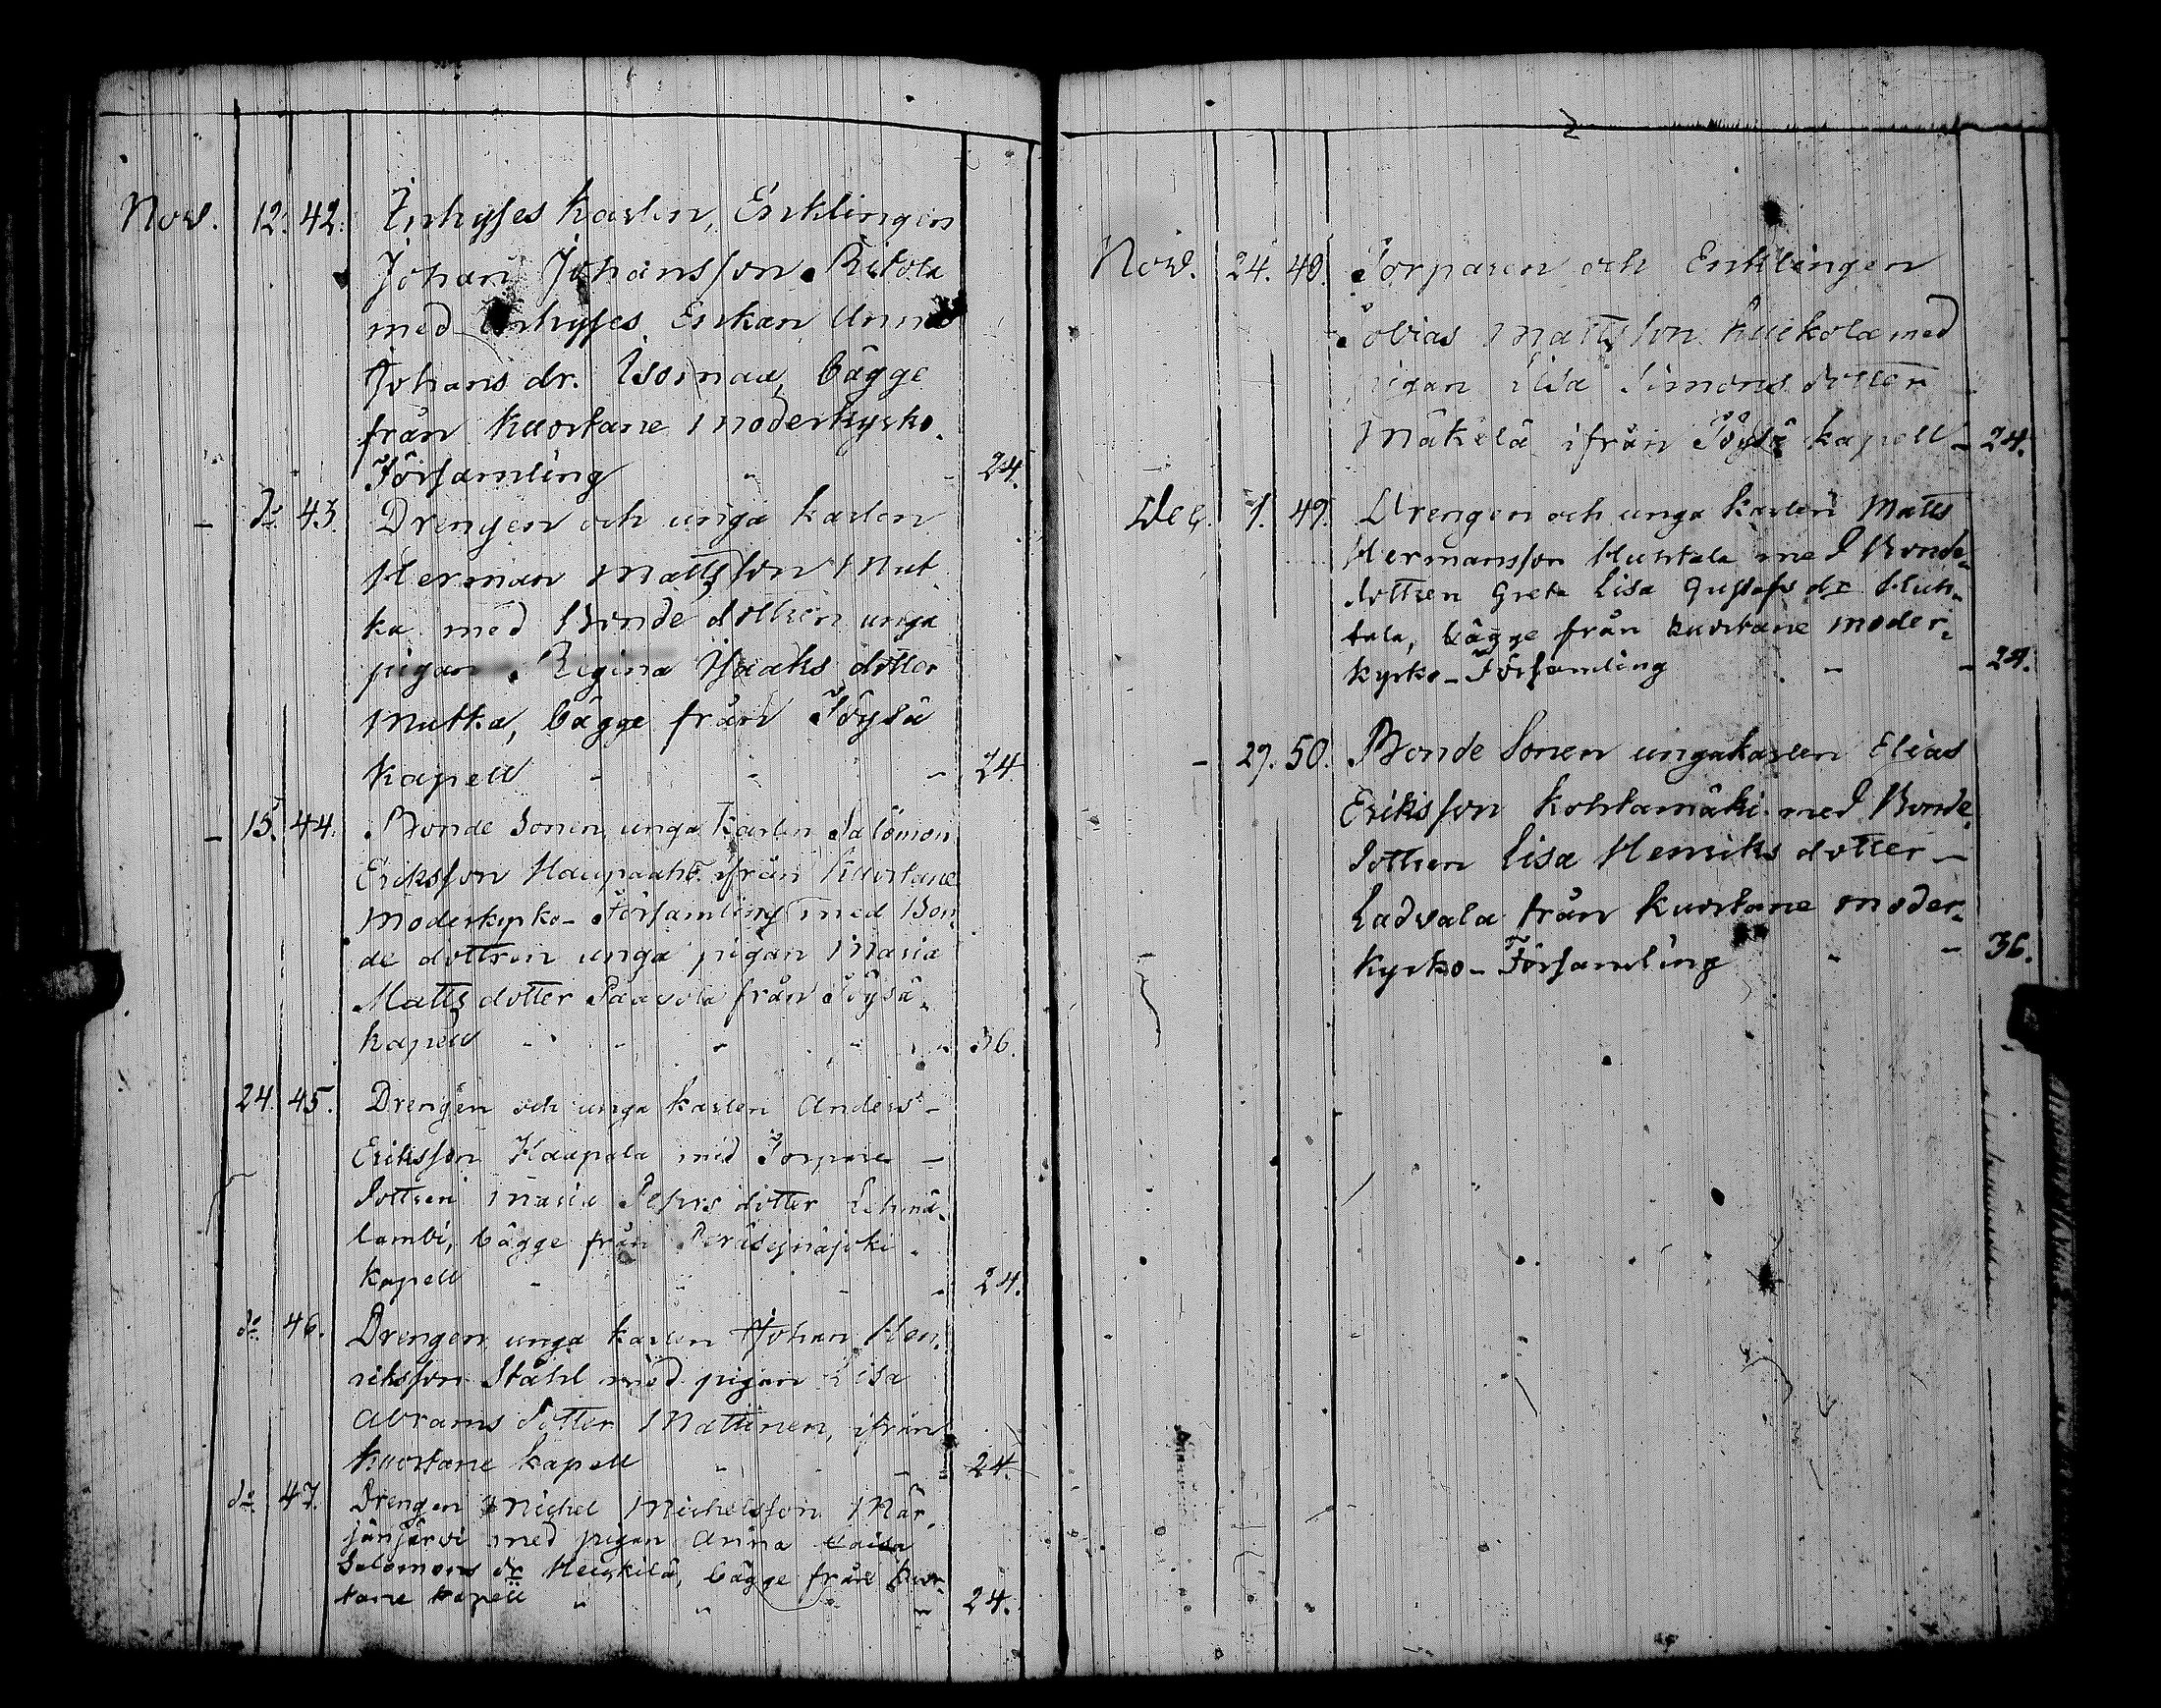 Nov. 12. 42. Inhyses karlen, Enklingen
Johan Johansson Ritola
med Inhyses Enkan Anna
Johans dr. Isoinaa, bägge
från Kuortane Moderkyrko-
Församling - - 24.
- do 43. Drengen och unga karlen
Herman Mattsson Mut
ka med Bonde dottren unga
pigan Regina Isaaks dotter
Mutka, bägge från Töysä
kapell - - - 24
- 15. 44. Bonde Sonen unga karlen Salomon
Eriksson Haapaaho ifrån Kuortane
Moderkyrko-Församling med Bon
de dottren unga pigan Maria
Matts dotter Paavola från Töysä
kapell - - - - - 36.
24. 45. Drengen och unga karlen Anders -
Eriksson Haapala med Torpare -
dottren Maria Pehrs dotter Lehmä-
lambi, bägge från Peräseinäjoki
kapell - - - - 24.
do 46. Drengen unga karlen Johan Hen-
riksson Ståhl med pigan Lisa
Abrams dotter Mattinen, ifrån
Kuortane kapell - - - 24.
do 47. Drengen Michel Michelsson Mär-
jänjärvi med pigan Anna Caisa
Salomons dr Heikkilä, bägge från Kuor-
tane kapell " " " - 24.
Nov. 24. 48. Torparen och Enklingen
Tobias Mattsson Kuckola med
pigan Lisa Simons dotter
Mäkelä ifrån Töysä kapell - 24.
Dec. 1. 49. Drengen och unga karlen Matts
Hermansson Huhtala med Bonde-
dottren Greta Lisa Gustafs dr Huh-
tala, bägge från Kuortane moder-
kyrko-Församling - - 24.
- 27. 50. Bonde Sonen ungakarlen Elias
Eriksson Kohtamäki med Bonde
dottren Lisa Henriks dotter -
Ladvala från Kuortane moder-
kyrko-Församling - - 36.